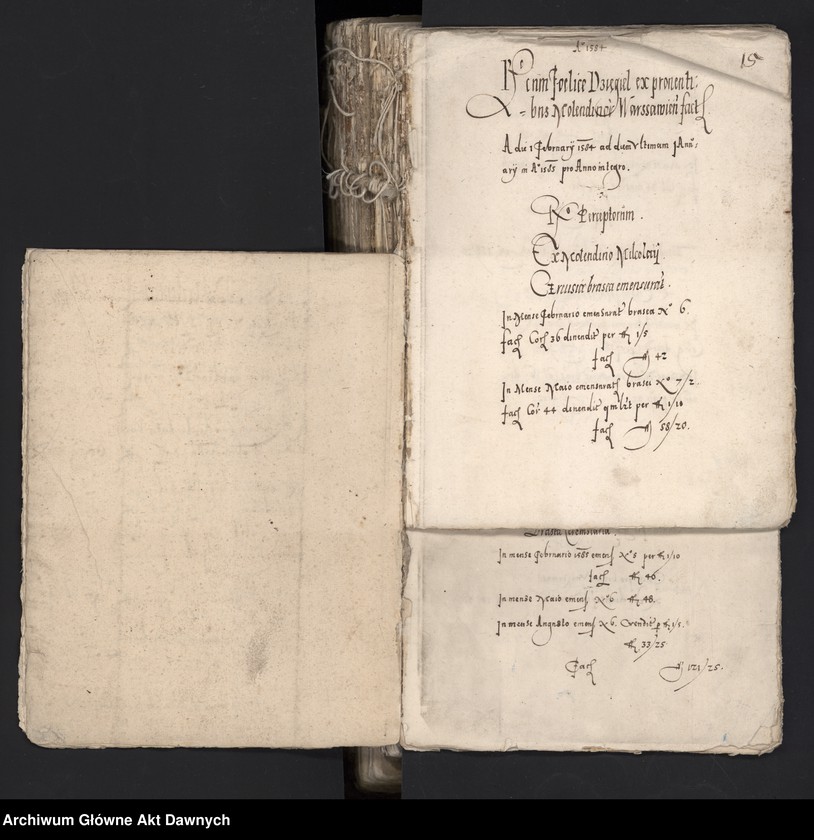 Aº 1584
15
Rº cum Foelice Dziegiel ex proventi:
bus Molendinor Warssavien fact
A die 1 Februarij 1584 ad diem ultimam Janu:
arij in Aº 1585 pro Anno integro.
Rº Perceptorum.
Ex Molendino
brasea emensurat.
In Mense Februario emensurat brasea Nº 6
fac Cor 36 divendit per fl 1/5
fac fl 42
In Mense Maio emensurat brasei Nº 7/2
fac Cor 44 divendit per fl 1/10
fac fl 58/20.
Brasea
In mense Februario 1585 emens Nº 5 per fl 1/10
fac fl 46.
In mense Maio emens Nº 6 fl 48.
In mense Augusto emens Nº 6. vendit p fl 1/5.
fl 33/25
Fac fl 121/25.
Archiwum Główne Akt Dawnych